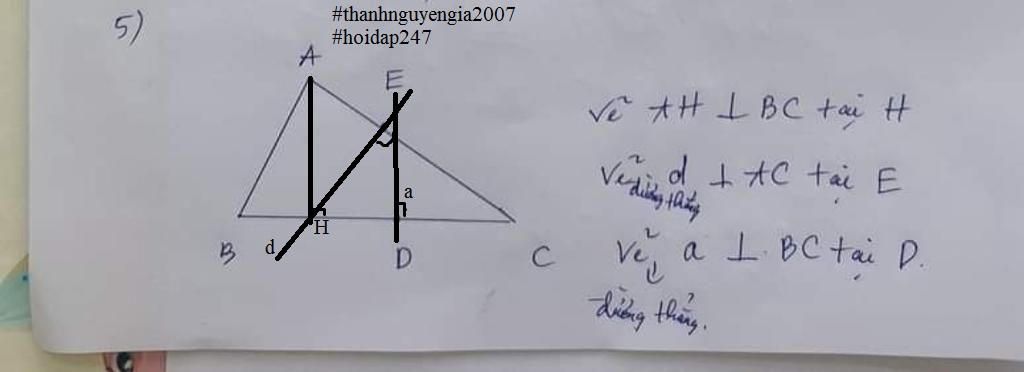 5)
#thanhnguyengia2007
#hoidap247
A
E
a
H
B
d
D
C
Vẽ AH ⊥ BC tại H
Vẽ đường thẳng d ⊥ AC tại E
Vẽ a ⊥ BC tại D.
đường thẳng.